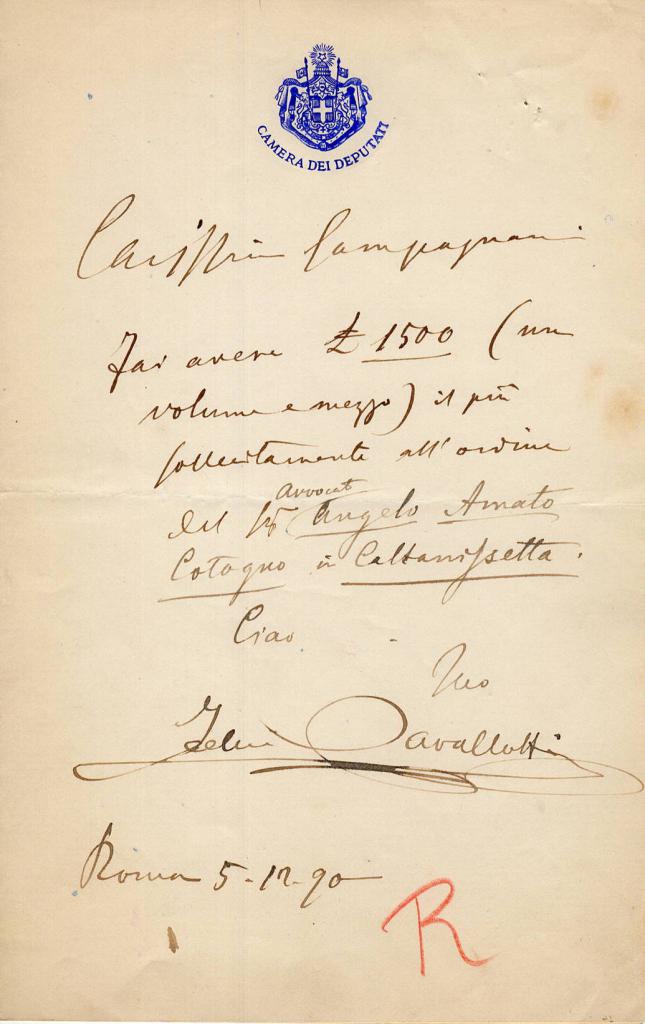 CAMERA DEI DEPUTATI
Carissimo Compagnoni
Fai avere £ 1500 (un
volume e mezzo) il più
sollecitamente all'ordine
del Sig Avvocato Angelo Amato
Cotogno in Caltanissetta.
Ciao
Tuo
Felice Cavallotti
Roma 5-12-90
R